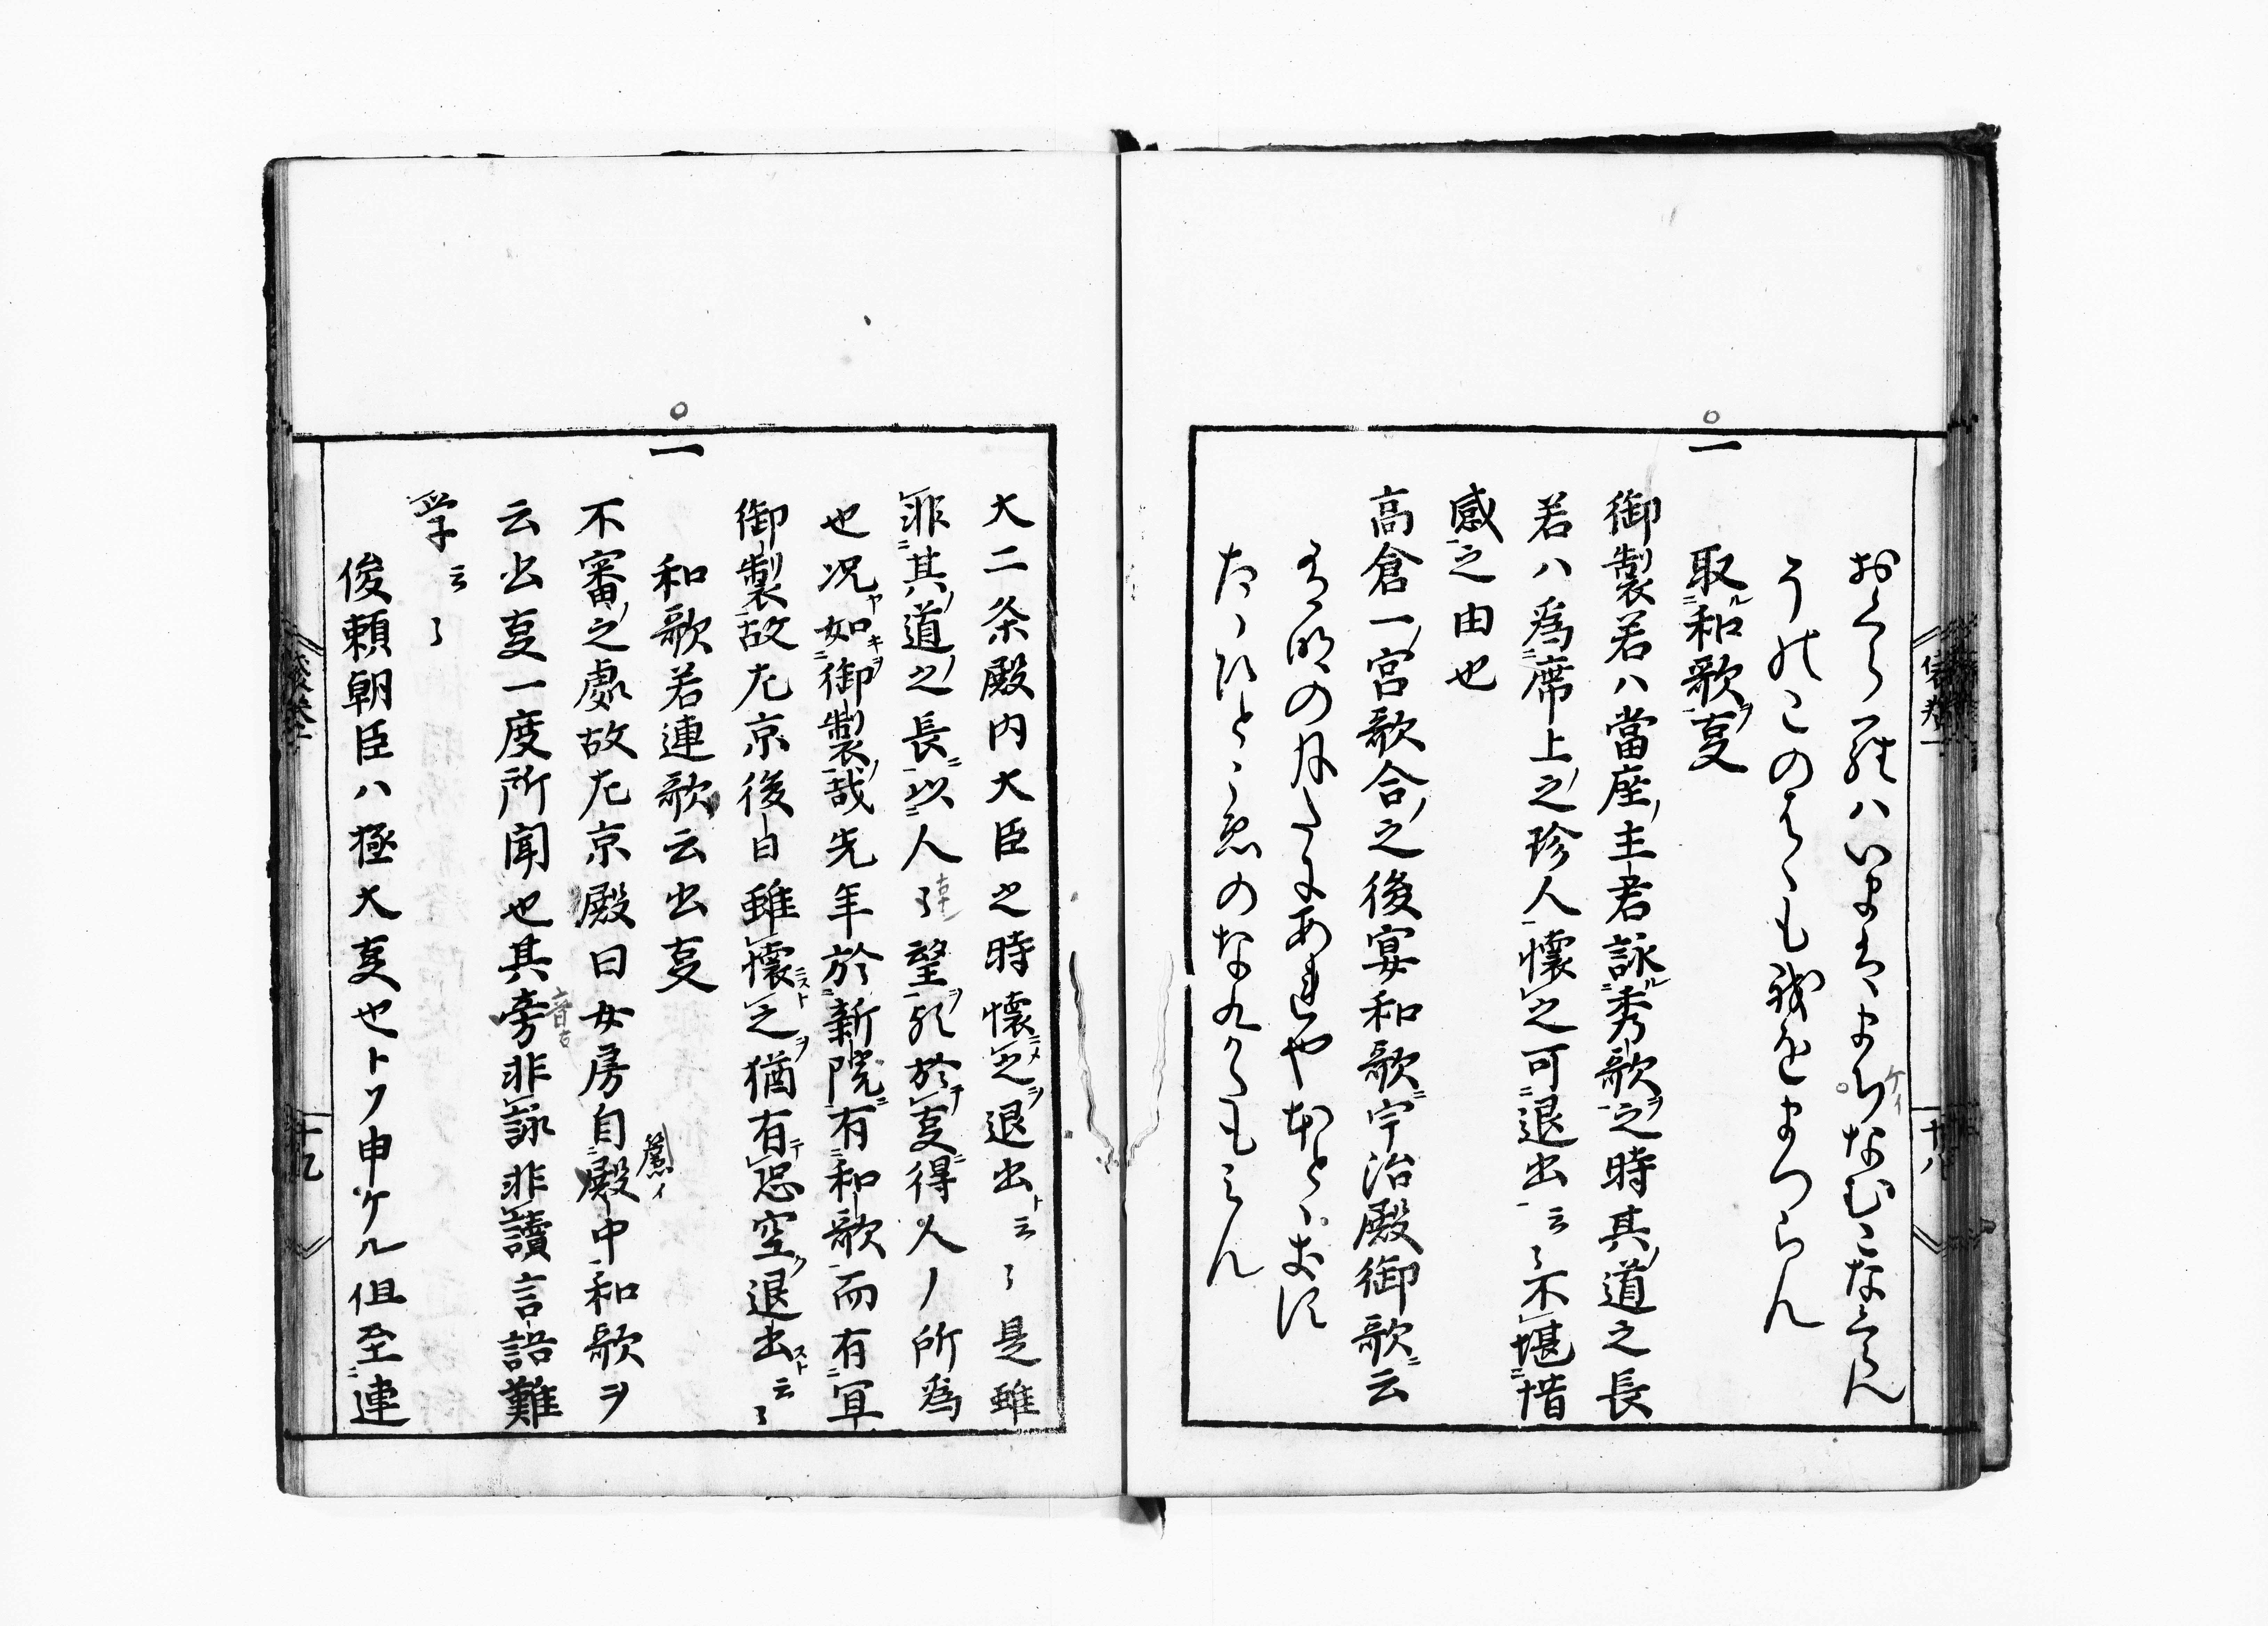 おくら羅ハいまハまからなむこなくらん
うのこのはゝも我をまつらん
一 取和歌事
御製若ハ當座主君詠秀歌之時其道之長
若ハ爲席上之珍人懐之可退出云々不堪惜
感之由也
高倉一宮歌合之後宴和歌宇治殿御歌云
有明の月たにあれやほとゝきす
たゝひとこゑのなかくもみん
大二条殿内大臣之時懐之退出云々是雖
非其道之長以人々望於事得人ノ所爲
也况如御製哉先年於新院有和歌而有冝
御製故左京後日雖懐之猶有恐空退出云々
一 和歌若連歌云出事
不審之處故左京殿曰女房自殿中和歌ヲ
簾イ
云出事一度所聞也其旁非詠非讀言語難
孚云々
俊頼朝臣ハ極大事也トソ申ケル但至連